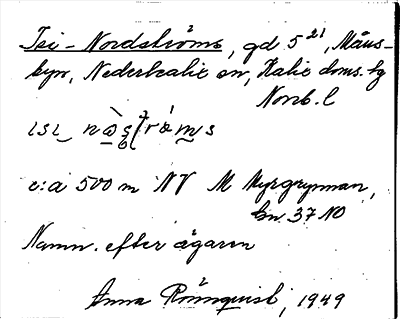 Isi-Nordströms, gd 5²¹, Måns-
byn, Nederkalix sn, Kalix doms. hg
Norrb. l
c:a 500 m NV M Myrgrynnan,
bn. 37 NO
Namn. efter ägaren
Anna Rönnquist, 1949